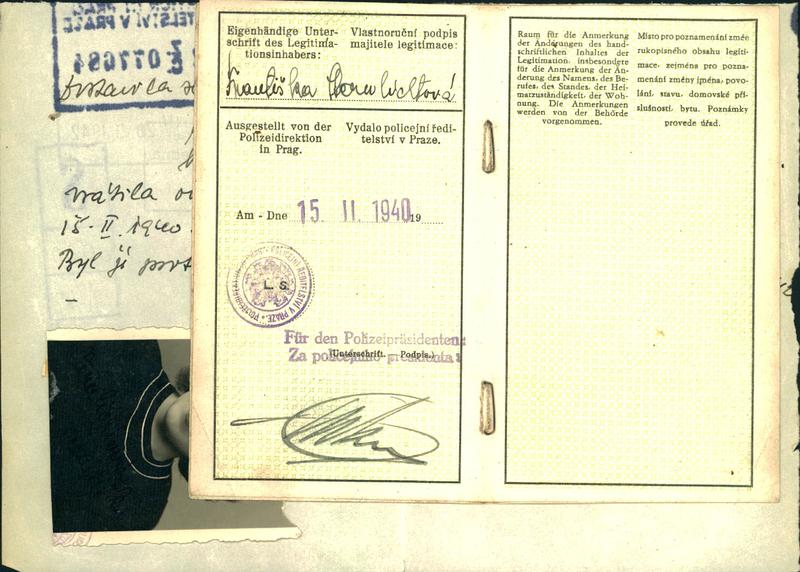 V PRAZE
Č 077084
dostavila se
vrátila
15. II. 1940.
Byl jí
Eigenhändige Unter-
schrift des Legitima-
tionsinhabers:
Vlastnoruční podpis
majitele legitimace:
Františka
Ausgestellt von der
Polizeidirektion
in Prag.
Vydalo policejní ředi-
telství v Praze.
Am - Dne 15. II. 1940 19
POLICEJNÍ ŘEDITELSTVÍ V PRAZE
L. S.
Für den Polizeipräsidenten:
Za policejního presidenta:
(Unterschrift. — Podpis.)
Raum für die Anmerkung
der Änderungen des hand-
schriftlichen Inhaltes der
Legitimation, insbesondere
für die Anmerkung der Än-
derung des Namens, des Be-
rufes, des Standes, der Hei-
matzuständigkeit, der Woh-
nung. Die Anmerkungen
werden von der Behörde
vorgenommen.
Místo pro poznamenání změn
rukopisného obsahu legiti-
mace, zejména pro pozna-
menání změny jména, povo-
lání, stavu, domovské pří-
slušnosti, bytu. Poznámky
provede úřad.